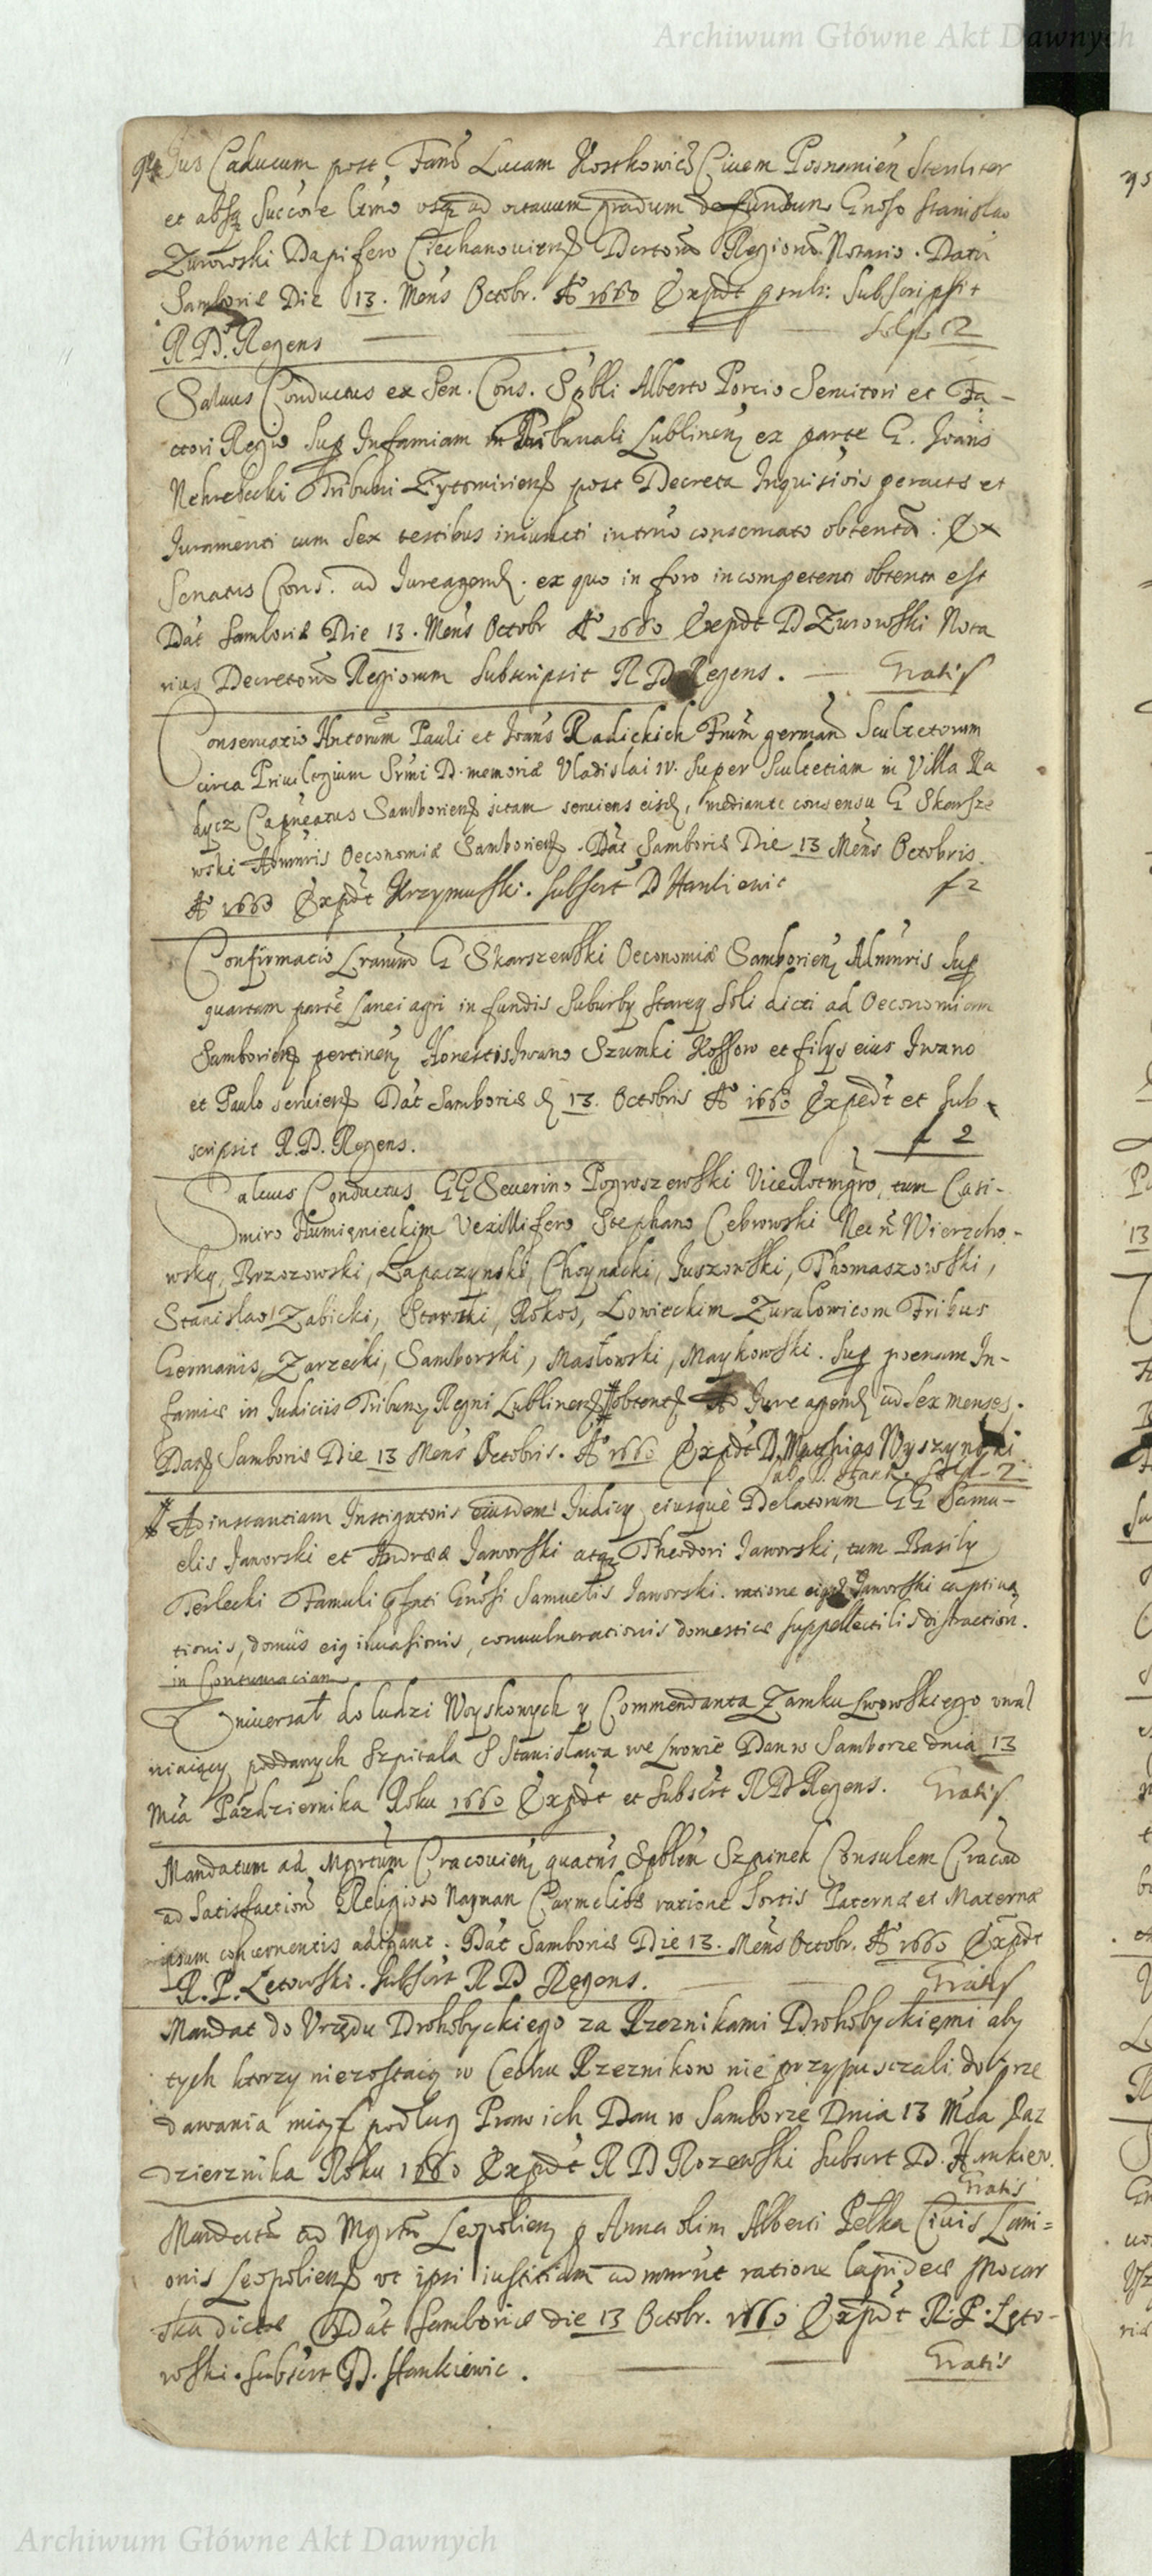 Archiwum Główne Akt Dawnych
94 Jus Caducum post Fanū Lucam Kostkowicz Ciuem Posnanien Steriliter
et absq Succore Ltmo usq ad octauum gradum defunctum Gnoso Stanislao
Zurowski Dapifero Ciechanouien Dectorū Regiorū Notario. Datū
Samboriæ Die 13. Mens Octobr. A° 1660 Expdt Subscripsit
R D. Regens 12
Saluus Conductus ex Sen. Cons. Spbli Alberto Porcio Seruitori et Fa-
ctori Regio Sup Infamiam in Tribunali Lublinen ex parte G. Joans
Nehrebecki Tribuni Zytomirien post Decreta Inquisitiois peracts et
Juramenti cum Sex testibus iniuncti intruo conseruato obtentā: Ex
Senatus Cons. ad Jureagend. ex quo in foro incompetenti obtenta est
Dat Samboriæ Die 13. Mens Octobr A° 1660 Expdt D Zurowski Nota
rius Decretorū Regiorum Subscripsit R D Regens. Gratis
Conseruatio Antorum Pauli et Joans Radickich Frum german Scultetorum
circa Priuilegium Srmi D. memoriæ Vladislai IV. Super Scultetiam in Villa Ra
dycz Capneatus Samborien sitam seruiens eisd, mediante consensu G Skarsze
wski Admnris Oeconomiæ Samborien. Dat Samboriæ Die 13 Mens Octobris.
A° 1660 Expdt Krzymuski. Subscrt D Hankiewic f 2
Confirmatio Lrarum G Skarszewski Oeconomiæ Samborien Admnris Sup
quartam parte Lanei agri in fundis Suburby Starey Soli dicti ad Oeconomiam
Samborien pertinen Honestis Iwano Szumki Kossow et filys eius Iwano
et Paulo seruien Dat Samboriæ d 13. Octobris A° 1660 Expedt et Sub-
scripsit R. D. Regens. f 2
Saluus Conductus GG Seuerino Pogroszewski ViceRotmgro, tum Casi-
miro Humięnieckim Vexillifero Stephano Cebrowski Nec n Wierzcho-
wsky, Brzozowski, Łapaczynski, Choynacki, Juszowski, Thomaszowski,
Stanislao Zabicki, Starski, Rokos, Lowieckim Zuralowicom Fribus
Germanis, Zarzecki, Samborski, Masłowski, Maykowski. Sup poenam In-
famiæ in Judiciis Tribun Regni Lublinen obtent Ad Jure agend ad sex menses.
Dat Samboriæ Die 13 Mens Octobris. A° 1660 Expdt D. Mathias Wyszynski
Sub. D. Hank. 2
Ad instantiam Instigatoris eiusdem Judicy eiusque Delatorum GG Samu-
elis Jaworski et Andreæ Jaworski atq Theodori Jaworski, tum Basily
Terlecki Famuli pfati Gnosi Samuelis Jaworski. ratione eigd Jaworski captiua
tionis, domus eig inuasionis, conuulnerationis domesticæ suppellectilis distraction.
in Contumaciam
Vniuersał do ludzi Woyskowych y Commendanta Zamku Lwowskiego vwal
niaiący poddanych Szpitala S Stanisława we Lwowie Dan w Samborze dnia 13
Mca Pazdziernika Roku 1660 Expdt et Subscrt R D Regens. Gratis
Mandatum ad Mgrtum Cracouien quatns Spblen Szpinek Consulem Cracou
ad Satisfaction Religioso Nagman Carmelitæ ratione Sortis Paternæ et Maternæ
ipsum concernentis adigant. Dat Samboriæ Die 13. Mens Octobr. A° 1660 Expdt
R. P. Letowski. Subscrt R D Regens. Gratis
Mandat do Vrzędu Drohobyckiego za Rzeznikami Drohobyckiemi aby
tych ktorzy niezostaią w Cechu Rzeznikow nie przypusczali do prze
dawania mięs podług Praw ich Dan w Samborze Dnia 13 Mca Paz
dziernika Roku 1660 Expdt R D Rozewski Subscrt D. Hankiew.
Gratis
Mandatū ad Mgrtū Leopolien p Anna olim Alberti Pełka Ciuis Lani=
onis Leopolien vt ipsi iustitiam admnrnt ratione lapideæ Mocar
ska dictæ Dat Samboriæ die 13 Octobr. 1660 Expdt R. P. Lęto-
wski. Subscrt D. Hankiewic. Gratis
Archiwum Główne Akt Dawnych